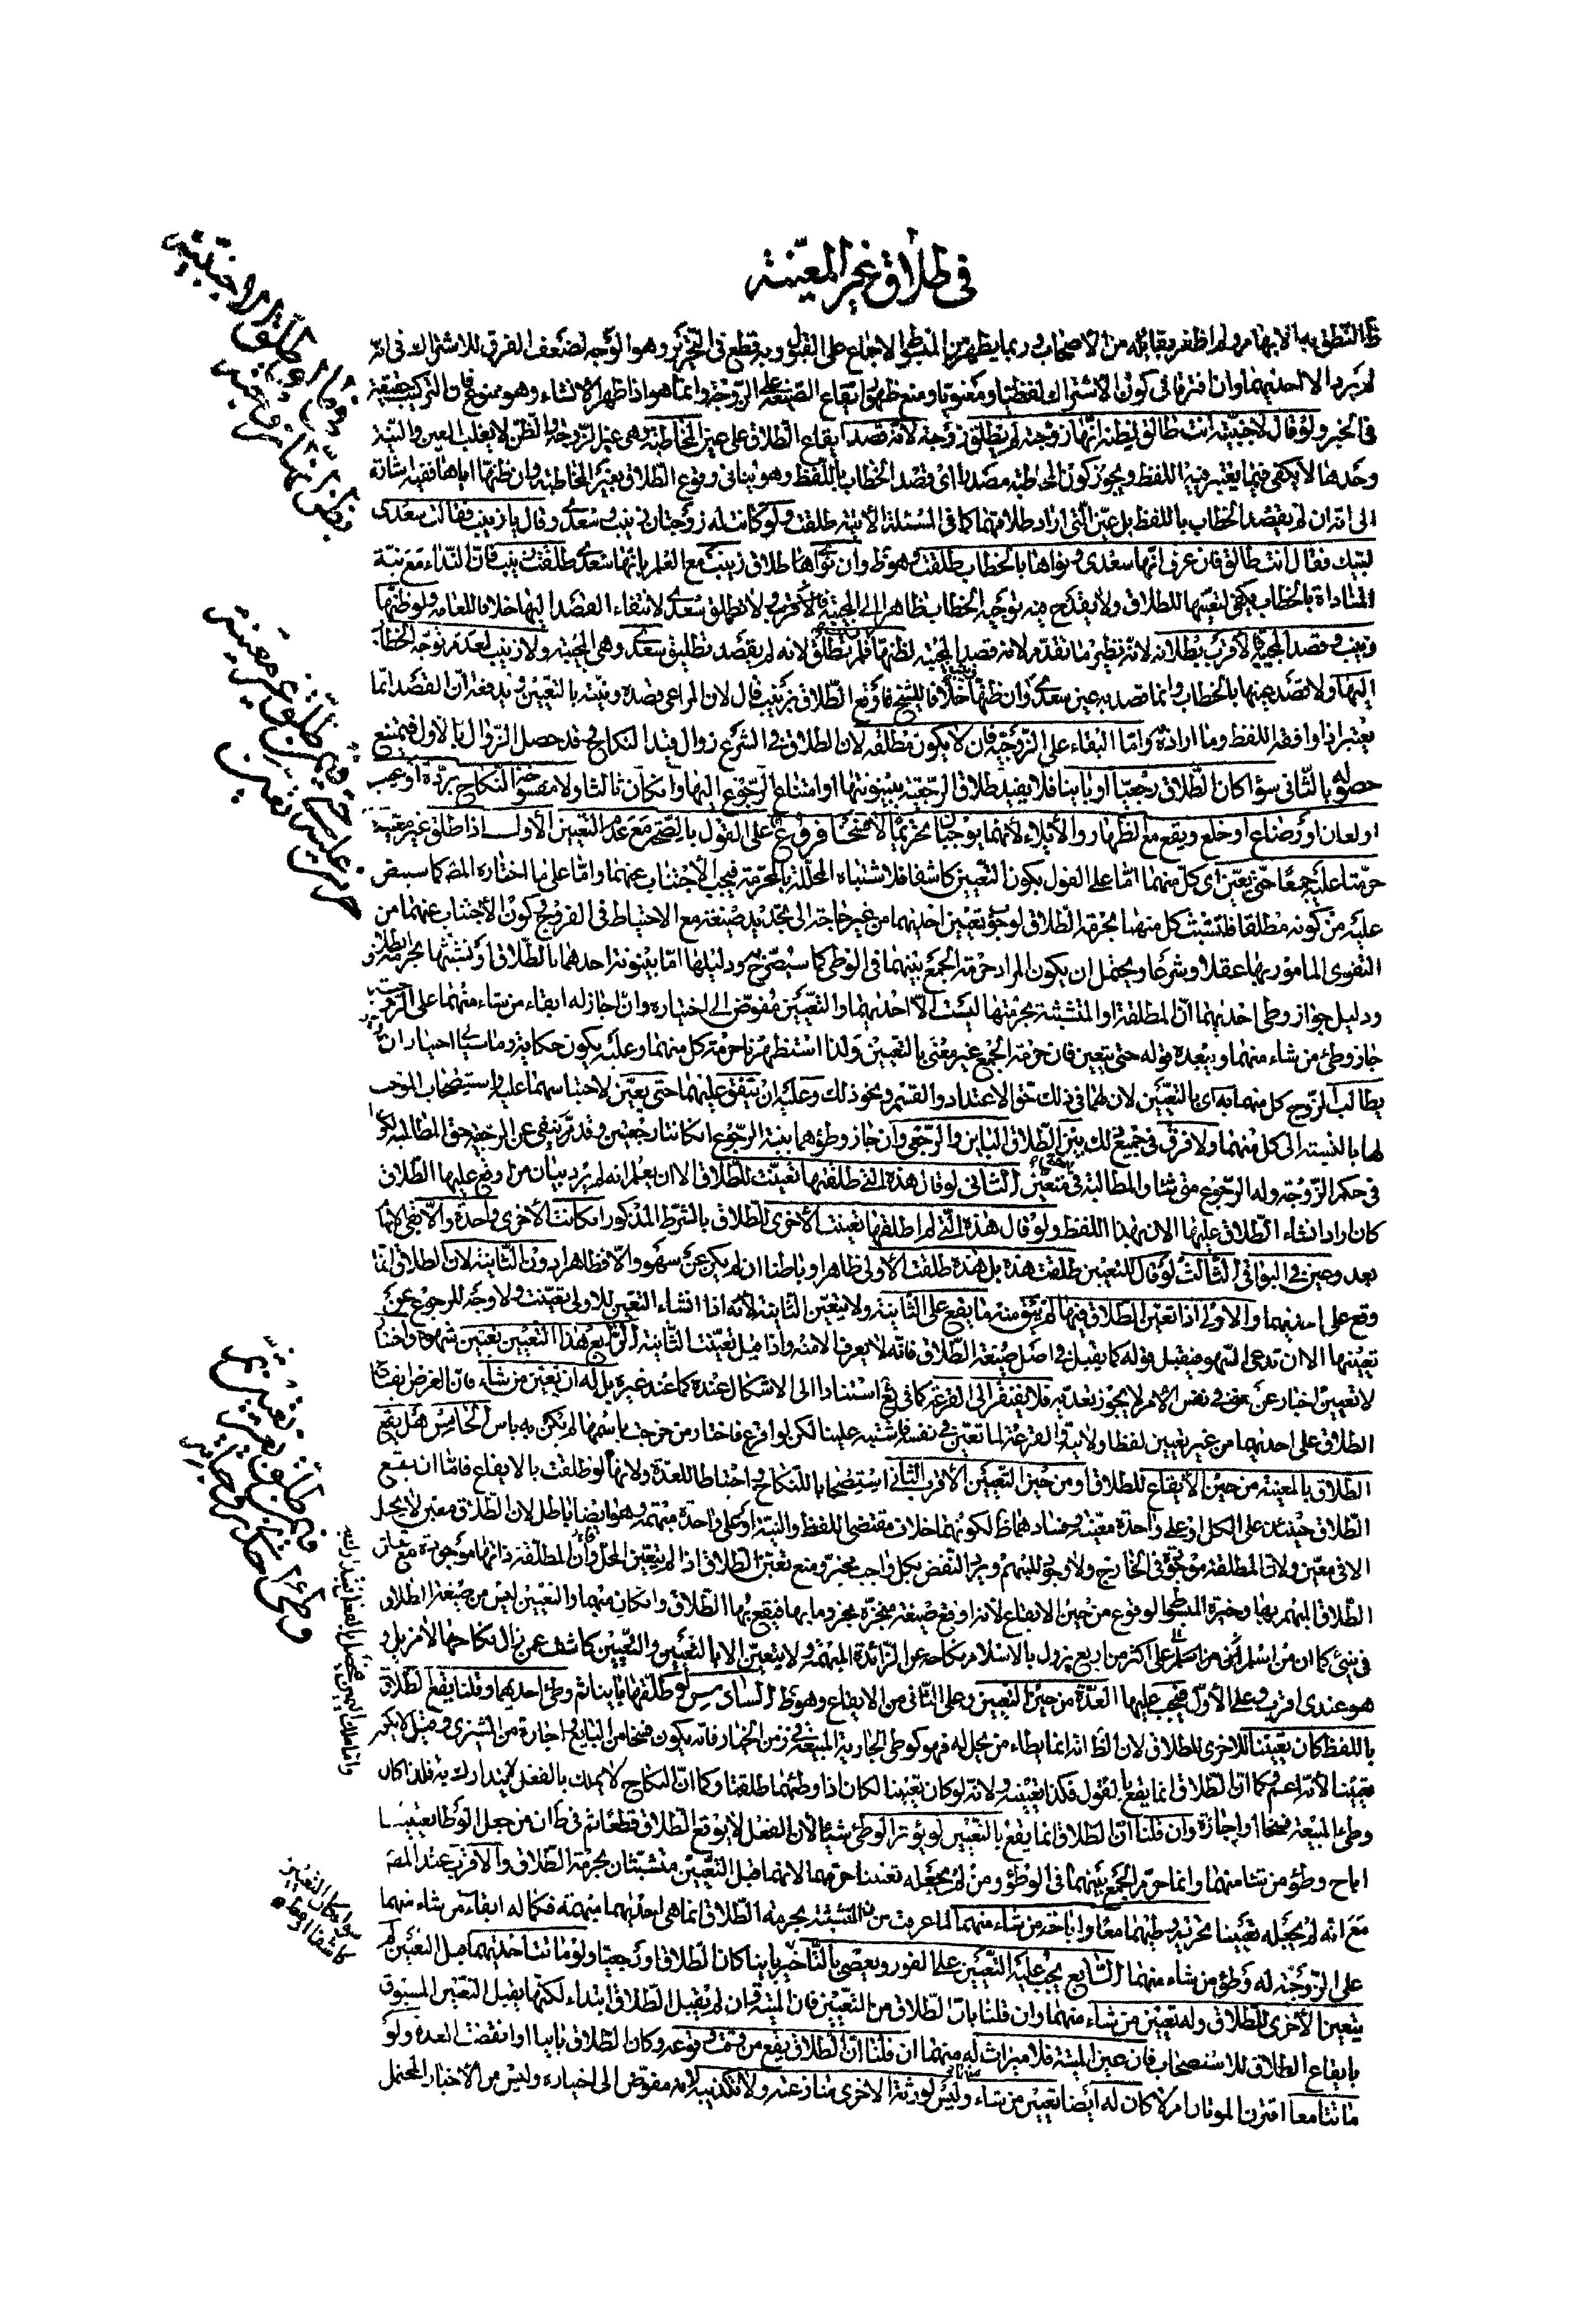 في طلاق غير المعينة
لم يرد الا احديهما وان افترقا في كون الاشتراك لفظيا ومعنويا ومنع ظهور ايقاع الصيغة على الزوجة وانما هو اذا ظهر الانشاء وهو ممنوع فان التركيب حقيقة
في الخبر ولو قال لاجنبية انت طالق لظنه انها زوجته لم يطلق زوجته لانه قصد ايقاع الطلاق على عين المخاطبة وهي غير الزوجة والظن لا يقلب العين والنية
وحدها لا يكفي فيما يعتبر فيه اللفظ ويجوز كون المخاطبة مصدرا اي قصد الخطاب باللفظ وهو ينافي وقوع الطلاق بغير المخاطبة وان ظنها اياها ففيه اشارة
الى انه ان لم يقصد الخطاب باللفظ بل عين التي اراد طلاقها كما في المسئلة الاتية طلقت ولو كانت له زوجتان زينب وسعدى وقال يا زينب فقالت سعدى
لبيك فقال انت طالق فان عرف انها سعدى ونواها بالخطاب طلقت وهو ظ وان نواها طلاق زينب مع العلم بانها سعدى طلقت زينب فان النداء مع نية
المناداة بالخطاب يكفي لتعينها للطلاق ولا يقدح فيه توجيه الخطاب ظاهرا الى المجيبة فالاقرب ولا تطلق سعدى لانتفاء القصد اليها خلافا للعامة ولو ظنها
زينب وقصد المجيبة فالاقرب بطلانه لانه نظير ما تقدم لانه قصد المجيبة لظنها زينب فلم تطلق لانه لم يقصد تطليق سعدى وهي المجيبة ولا زينب لعدم توجه الخطاب
اليها ولا قصد عينها بالخطاب وانما قصد به عين سعدى وان ظنها زينب خلافا للشيخ فاوقع الطلاق بزينب قال لان المراعى قصده ونيته بالتعيين ويندفع بان القصد انما
يعتبر اذا وافقه اللفظ وما اراده واما البقاء على الزوجية فان لا يكون مطلقة لان الطلاق في الشرع زوال قيد النكاح وقد حصل الزوال بالاول فيمتنع
حصوله بالثاني سواء كان الطلاق رجعيا او باينا فلا يفيد طلاق الرجعية بينونتها او امتناع الرجوع اليها وان كان ثالثا ولا مفسوخة النكاح بردة او عيب
او لعان او رضاع او خلع ويقع مع الظهار والايلاء لانهما يوجبان تحريما لا فسخا فروع على القول بالصحة مع عدم التعيين الاول اذا طلق غير معينة
حرمتا عليه جميعا حتى يعين اي كل منهما اما على القول بكون التعيين كاشفا فلاشتباه المحللة بالمحرمة فيجب الاجتناب عنهما واما على ما اختاره المص كما سينص
عليه من كونه مطلقا فلتشبث كل منهما بحرمة الطلاق لوجوب تعيين احديهما من غير حاجة الى تجديد صيغة مع الاحتياط في الفروج وكون الاجتناب عنهما من
التقوى المامور بها عقلا وشرعا ويحتمل ان يكون المراد حرمة الجمع بينهما في الوطي كما سيصرح به ودليلها اما بينونة احدهما بالطلاق او تشبثها بحرمة الطلاق
ودليل جواز وطي احديهما ان المطلقة او المتشبثة بحرمتها ليست الا احديهما والتعيين مفوض الى اختياره وان جاز له ابقاء من شاء منهما على الزوجية
جاز وطئ من شاء منهما ويبعده قوله حتى يتعين فان حرمة الجمع غير مغنى بالتعيين ولذا استظهرنا حرمة كل منهما وعليه يكون حكاية وما سيأتي اختيارا
يطالب الزوج كل منهما به اي بالتعيين لان لهما في ذلك حق الاعتداد والقسم ونحو ذلك وعليه ان ينفق عليهما حتى يعين لاحتباسهما عليه واستصحاب الموجب
لها بالنسبة الى كل منهما ولا فرق في جميع ذلك بين الطلاق الباين والرجعي وان جاز وطؤهما بنية الرجوع ان كانتا رجعيتين وقد مر ينفى عن الرجعية حق المطالبة لكونها
في حكم الزوجة وله الرجوع متى شاء والمطالبة في متعين الثاني لو قال هذه التي طلقتها تعينت للطلاق الا ان يعلم انه لم يرد بيان من وقع عليها الطلاق
كان اراد انشاء الطلاق عليها الان بهذا اللفظ ولو قال هذه التي لم اطلقها تعينت الاخرى للطلاق بالشرط المذكور ان كانت الاخرى واحدة والا بقي الابهام
بعد وعين في البواقي الثالث لو قال للتعيين طلقت هذه بل هذه طلقت الاولى ظاهرا وباطنا ان لم يكن عن سهو والا فظاهرا دون الثانية لان الطلاق انما
وقع على احديهما والاولى اذا تعين الطلاق فيها لم يبق منه ما يقع على الثانية ولا يتعين الثانية لانه اذا انشاء التعيين للاولى تعينت ولا وجه للرجوع عن
تعيينها الا ان تدعى السهو فيقبل قوله كما يقبل في اصل صيغة الطلاق فانه لا يعرف الا منه واذا قبل تعينت الثانية الرابع هذا التعيين تعيين شهوة واختيار
لا تعيين اخبار عن معين في نفس الامر لا يجوز تعديه فلا يفتقر الى القرعة كما في يع استنادا الى الاشكال عنده كما عند غيره بل له ان يعين من شاء فان الغرض ايقاع
الطلاق على احديهما من غير تعيين لفظا ولا نية والقرعة لما تعين في نفسه فاشتبه علينا لكن لو اقرع فاختار من خرجت باسمها لم يكن به باس الخامس هل يقع
الطلاق بالمعينة من حين الايقاع للطلاق او من حين التعيين الاقرب الثاني استصحابا للنكاح واحتياطا للعدة ولانها لو طلقت بالايقاع فاما ان يقع
الطلاق حينئذ على الكل او على واحدة معينة وفسادهما ظ لكونهما خلاف مقتضى اللفظ والنية او على واحدة مبهمة وهو ايضا باطل لان الطلاق معين لا يحل
الا في معين ولان المطلقة موجودة في الخارج ولا وجود للمبهم ويرد النقض بكل واجب مخير ومنع تعين الطلاق اذا لم يتعين المحل وان المطلقة ذاتها موجودة مع
الطلاق المبهم بها وخيرة المبسوط الوقوع من حين الايقاع لانه اوقع صيغة منجزة مجزوما بها فيقع بها الطلاق وان كان مبهما والتعيين ليس من صيغة الطلاق
في شئ كما ان من اسلم على اكثر من اربع يزول بالاسلام نكاحه عن الزائدة المبهمة ولا يتعين الا بالتعيين والتعيين كاشف عمن زال نكاحها
هو عندي اقرب وعلى الاول فيجب عليها العدة من حين التعيين وعلى الثاني من الايقاع وهو ظ السادس لو طلقها باينا ثم وطئ احديهما وقلنا يقع الطلاق
باللفظ كان تعيينا للاخرى للطلاق لان الظ انه انما يطاء من يحل له فهو كوطي الجارية المبيعة في زمن الخيار فانه يكون فسخا من البايع واجازة من المشتري وقيل لا يكون
تعيينا لانه اعم وكما ان الطلاق انما يقع بالقول فكذا تعيينه ولانه لو كان تعيينا لكان اذا وطئهما طلقتا وكما ان النكاح لا يملك بالفعل لا يتدارك به فلذا كان
وطئ المبيعة فسخا او اجازة وان قلنا ان الطلاق انما يقع بالتعيين لم يؤثر الوطئ شيئا لان الفعل لا يوقع الطلاق قطعا ثم في ط ان من جعل الوطا تعيينا
اباح وطؤ من شاء منهما وانما حرم الجمع بينهما في الوطؤ ومن لم يجعله تعيينا حرمهما لانهما قبل التعيين متشبثان بحرمة الطلاق والاقرب عند المص
مع انه لم يجعله تعيينا تحريم وطيهما معا واباحة من شاء منهما لما عرفت من ان المتشبثة بحرمة الطلاق انما هي احديهما مبهمة فكما له ابقاء من شاء منهما
على الزوجية له وطؤ من شاء منهما السابع يجب عليه التعيين على الفور ويعصي بالتاخير باينا كان الطلاق او رجعيا ولو ماتت احديهما قبل التعيين لم
يتعين الاخرى للطلاق وله تعيين من شاء منهما وان قلنا بان الطلاق من التعيين فان الميتة وان لم يقبل الطلاق ابتداء لكنها يقبل التعيين المسبوق
بايقاع الطلاق للاستصحاب فان عين الميتة فلا ميراث له منها ان قلنا ان الطلاق يقع من وقت وقوعه وكان الطلاق باينا او انقضت العدة ولو
ماتتا معا اقترن الموتان ام لا كان له ايضا تعيين من شاء وليس لورثة الاخرى منازعته ولا تكذيبه لانه مفوض الى اختياره وليس من الاخبار المحتمل